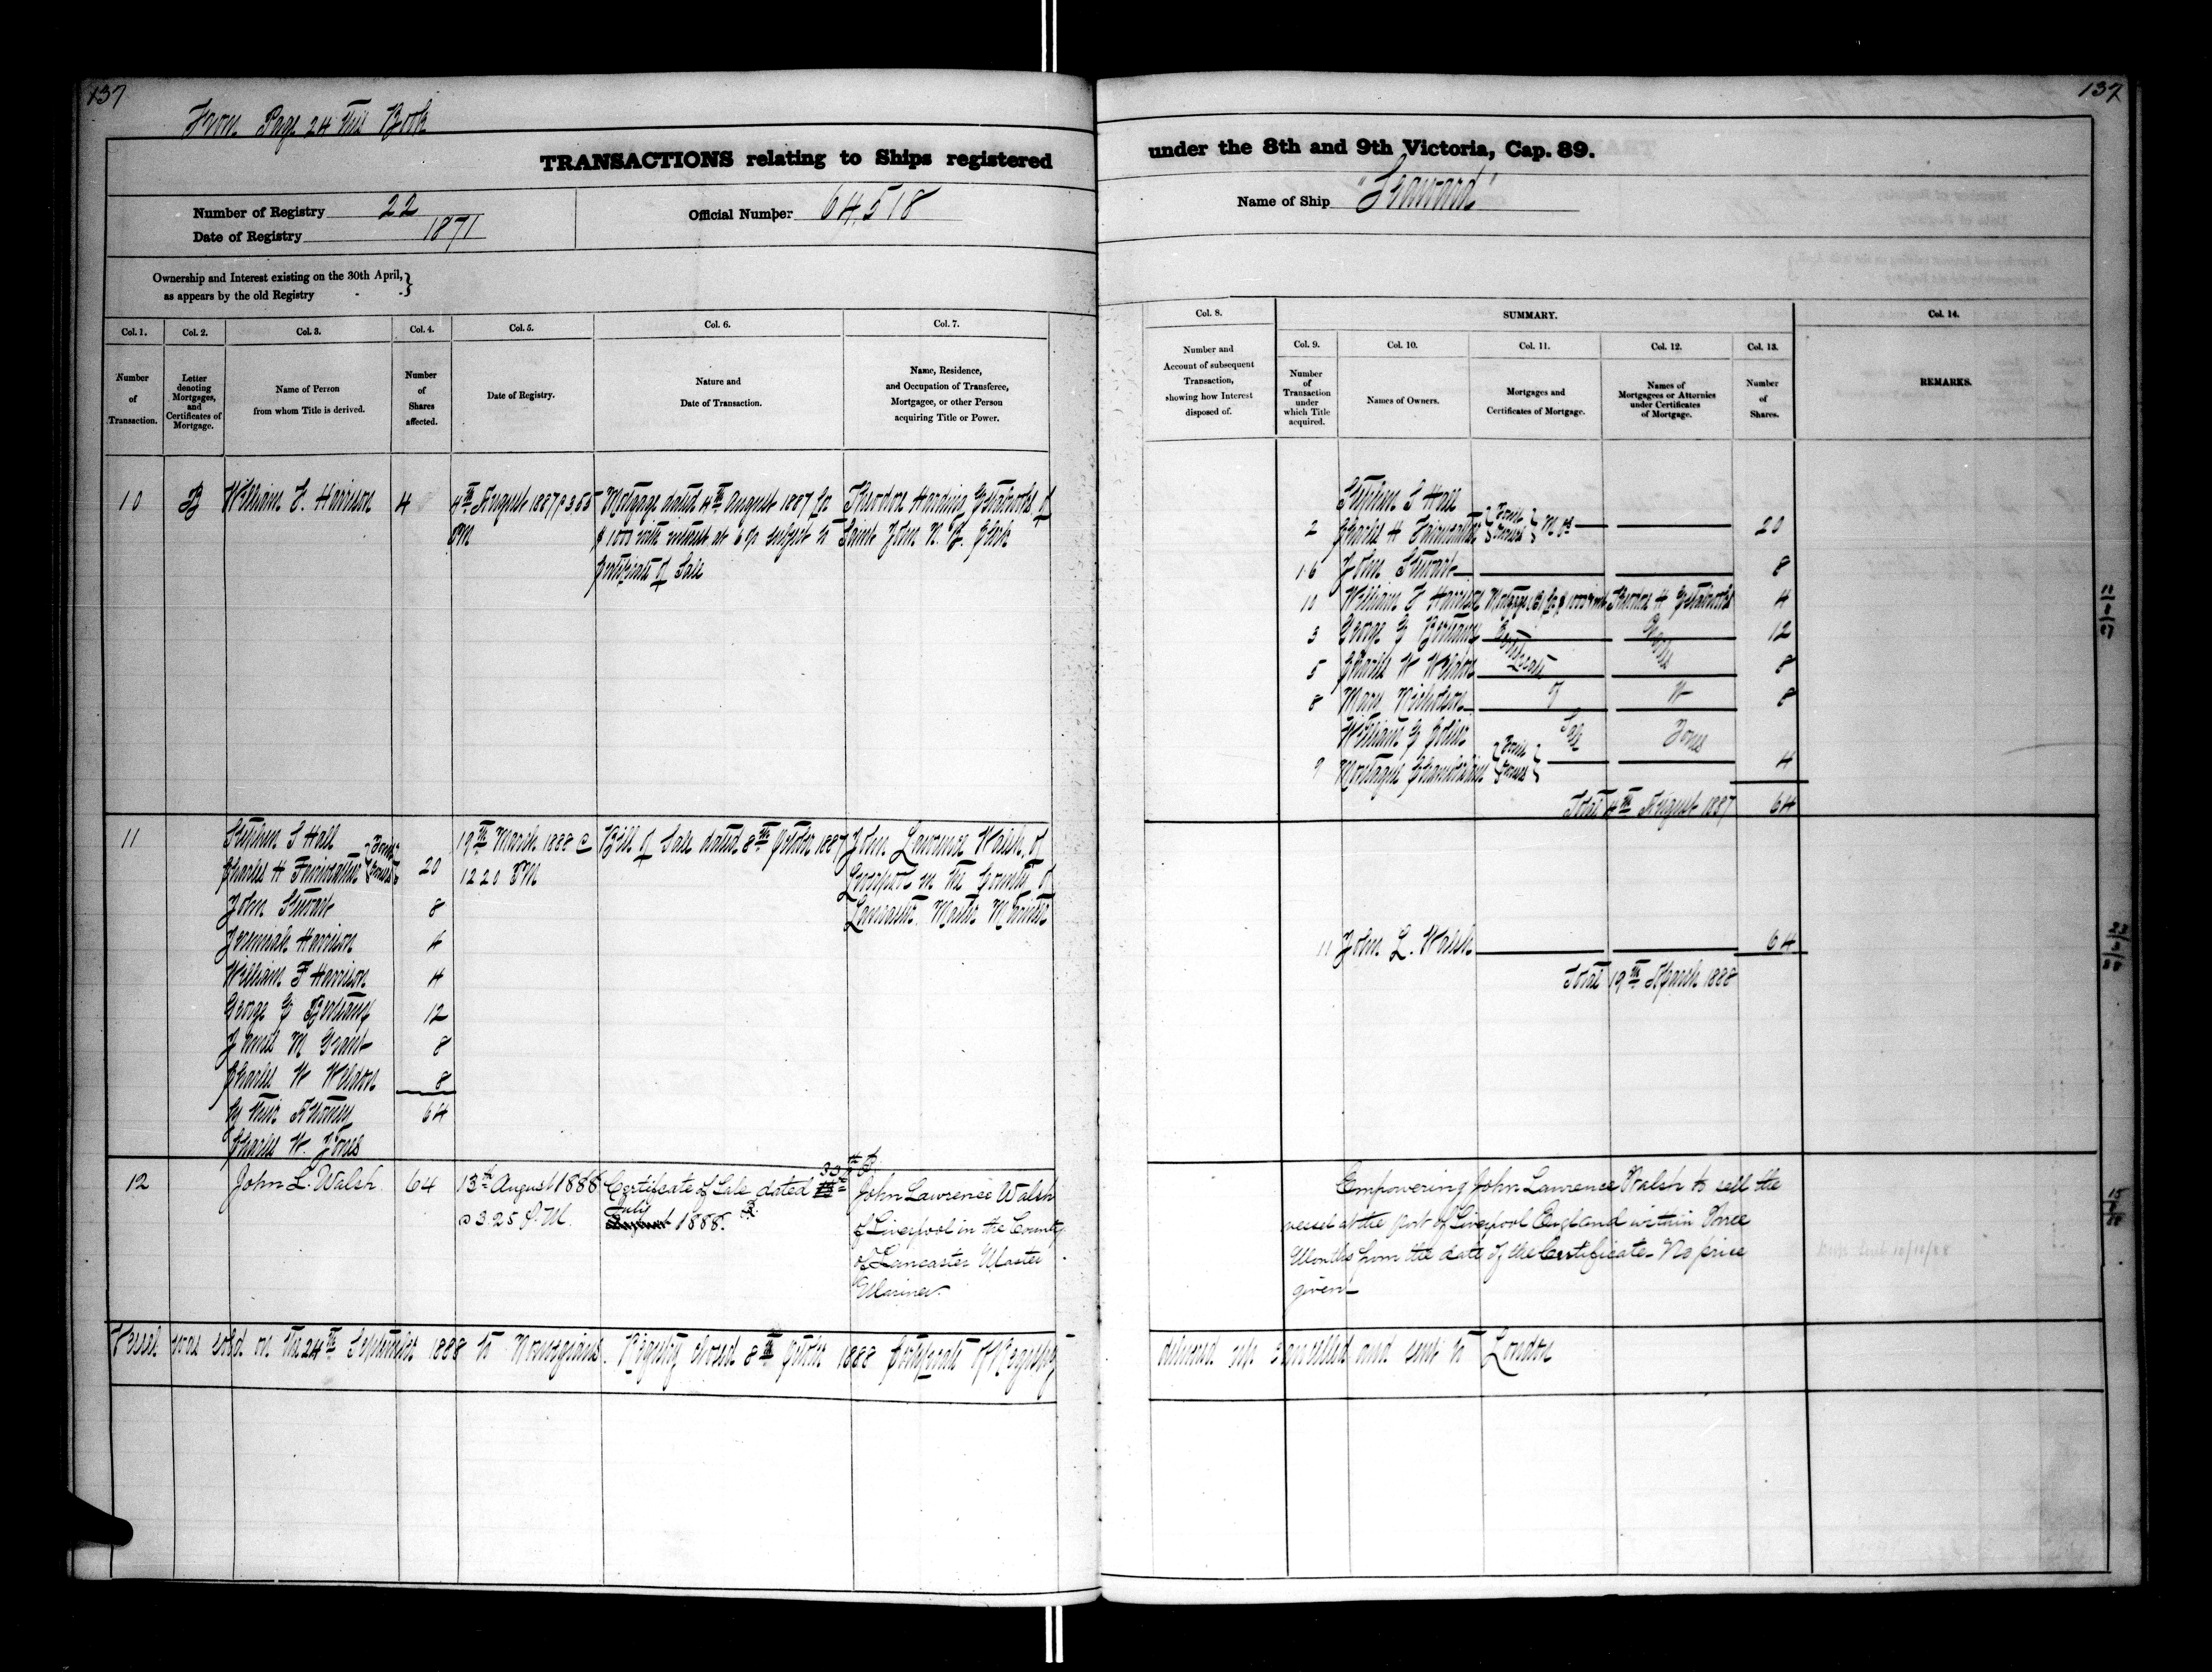 137
From Page 24 this Book
TRANSACTIONS relating to Ships registered
Number of Registry 22
Date of Registry 1871
Official Number 64518
Ownership and Interest existing on the 30th April,}
as appears by the old Registry
Col. 1.
Number
of
Transaction.
Col. 2.
Letter
denoting
Mortgages,
and
Certificates of
Mortgage.
Col. 3.
Name of Person
from whom Title is derived.
Col. 4.
Number
of
Shares
affected.
Col. 5.
Date of Registry.
Col. 6.
Nature and
Date of Transaction.
Col. 7.
Name, Residence,
and Occupation of Transferee,
Mortgagee, or other Person
acquiring Title or Power.
10 B William F. Harrison 4
4th August 1887 @ 3.55
PM
Mortgage dated 4th August 1887 for
$1000 with interest at 6 % subject to
Certificate of Sale
Theodore Harding Estabrooks of
Saint John N. B. Clerk
11
Stephen S Hall
Charles H Fairweather } Joint Owners 20
John Stewart 8
Jeremiah Harrison 4
William F Harrison 4
George G 12
James M Grant 8
Charles W Weldon 8
by their Attorney 64
Charles W. Jones
19th March 1888 @
12 20 PM
Bill of Sale dated 8th October 1887
John Lawrence Walsh, of
Liverpool in the County of
Lancaster. Master Mariner
12 John L. Walsh 64
13th August 1888
@ 3.25 P.M.
Certificate of Sale dated
July
August 1888.
John Lawrence Walsh
of Liverpool in the County
of Lancaster Master
Mariner
Vessel was sold on the 24th September 1888 to Norwegians. Registry closed 8th October 1888 Certificate of Registry
137
under the 8th and 9th Victoria, Cap. 89.
Name of Ship "Seaward"
Col. 8.
Number and
Account of subsequent
Transaction,
showing how Interest
disposed of.
SUMMARY.
Col. 9.
Number
of
Transaction
under
which Title
acquired.
Col. 10.
Names of Owners.
Col. 11.
Mortgages and
Certificates of Mortgage.
Col. 12.
Names of
Mortgagees or Attornies
under Certificates
of Mortgage.
Col. 13.
Number
of
Shares.
Col. 14.
REMARKS.
Stephen S Hall
2 Charles H Fairweather } Joint Owners } 20
16 John Stewart 8
10 William F Harrison Mortgage (B) for $1000 &int Theodore H Estabrooks 4
3 George G 12
5 Charles W Weldon 8
8 Mary Nicholson 8
Certificate of Sale
Charles W Jones
William G
9 Montague Chamberlain } Joint Owners } 4
Total 4th August 1887 64
11 John L. Walsh 64
Total 19th March 1888
Empowering John Lawrence Walsh to sell the
vessel at the port of Liverpool England within Three
Months from the date of the Certificate. No price
given
delivered up cancelled and sent to London